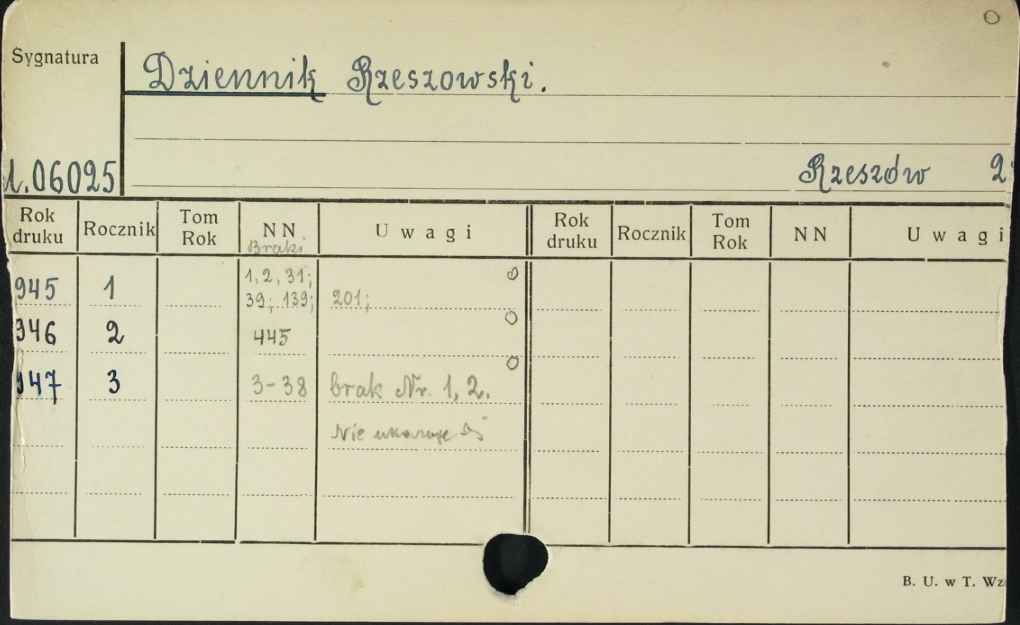 Sygnatura
Dziennik Rzeszowski.
1.06025
Rzeszów 2
Rok druku Rocznik Tom Rok NN Uwagi Rok druku Rocznik Tom Rok NN Uwagi
Braki
945 1 1, 2, 31; 39; 139; 201;
946 2 445
947 3 3-38 brak Nr. 1, 2.
Nie ukazuje się
B. U. w T. Wz